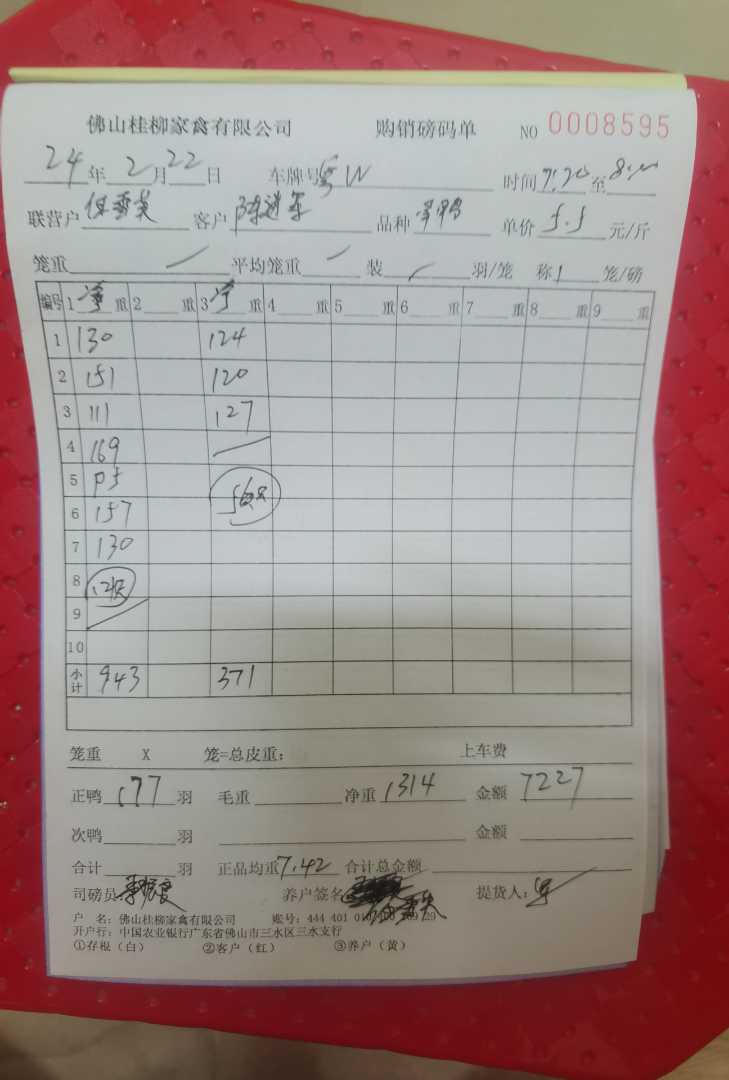 佛山桂柳家禽有限公司 购销磅码单 NO 0008595
24年2月22日 车牌号粤W 时间7:20至8:00
联营户 客户 陈进军 品种 单价5.5元/斤
笼重 平均笼重 装 羽/笼 称1笼/磅
编号 1净重 2重 3净重 4重 5重 6重 7重 8重 9重
1 130 124
2 151 120
3 111 127
4 169
5 95
6 157
7 130
8
9
10
小计 943 371
笼重 X 笼=总皮重: 上车费
正鸭177羽 毛重 净重1314 金额7227
次鸭 羽 金额
合计 羽 正品均重7.42 合计总金额
司磅员: 养户签名 提货人:
户 名: 佛山桂柳家禽有限公司 账号: 444 401 29
开户行: 中国农业银行广东省佛山市三水区三水支行
①存根(白) ②客户(红) ③养户(黄)